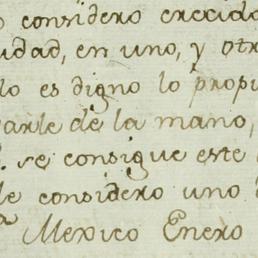 considero crecido
idad, en uno, y otr
lo es digno lo propi
arle de la mano,
se consigue este
le considero uno
Mexico Enero